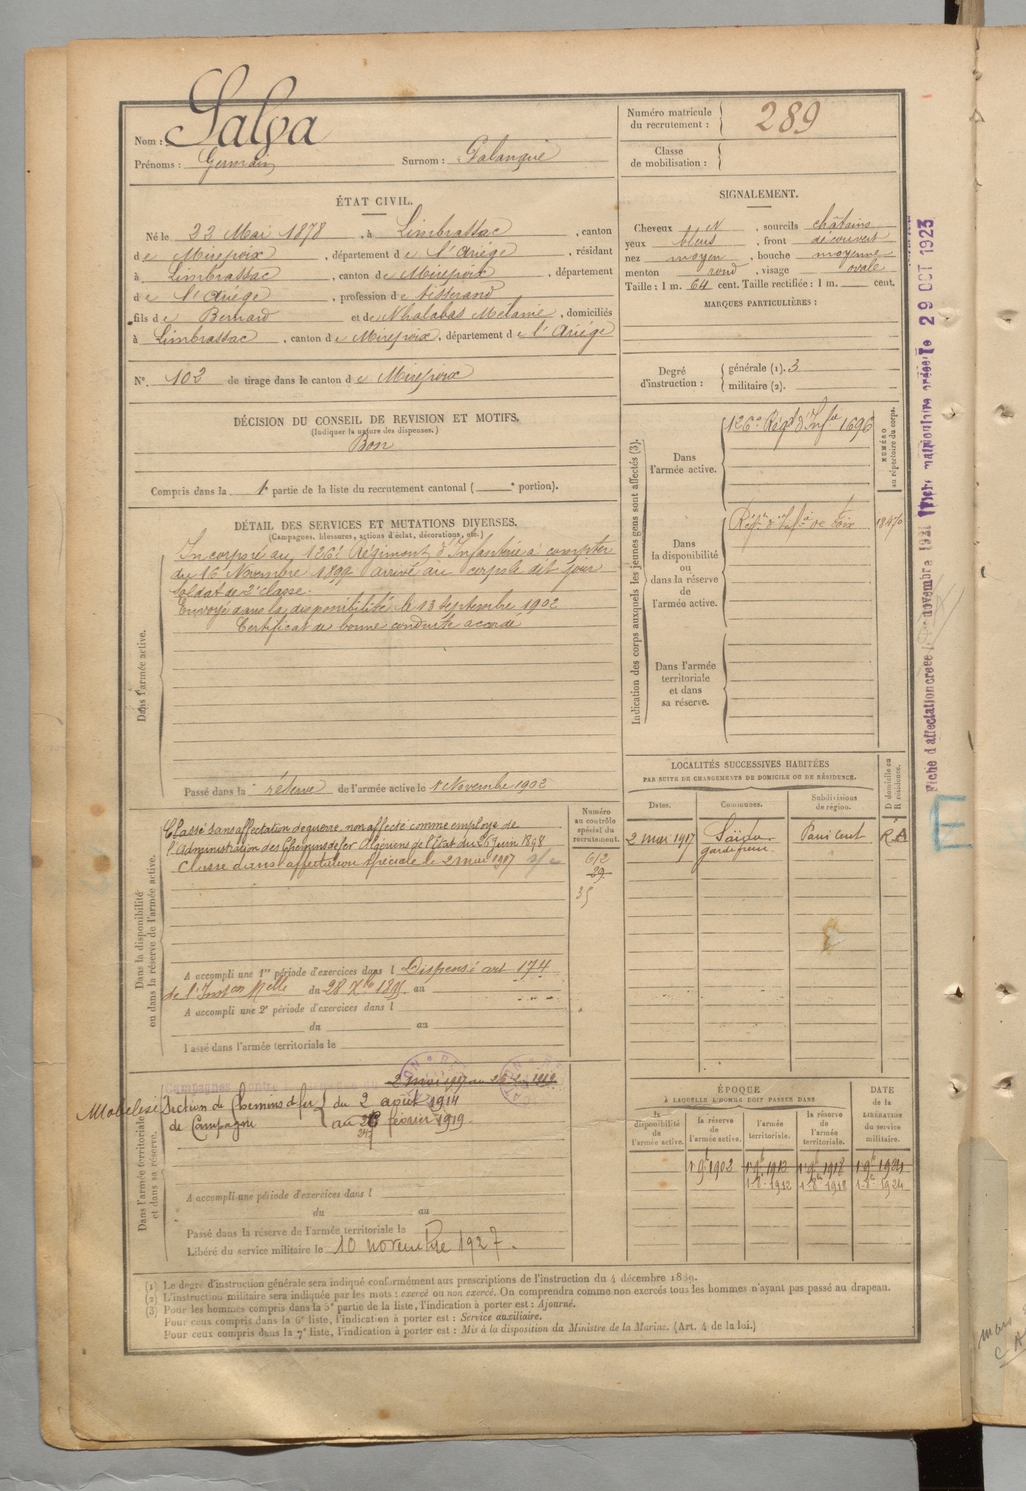 Nom : Salva
Prénoms : Germain Surnom : Palanquié
Numéro matricule du recrutement : 289
Classe de mobilisation :
ÉTAT CIVIL.
Né le 22 Mai 1878, à Limbrassac, canton
de Mirepoix, département de l'Ariège, résidant
à Limbrassac, canton de Mirepoix, département
de l'Ariège, profession de tisserand
fils de Bernard et de Mélanie, domiciliés
à Limbrassac, canton de Mirepoix, département de l'Ariège
N°. 102 de tirage dans le canton de Mirepoix
SIGNALEMENT.
Cheveux N, sourcils châtains
yeux bleus, front découvert
nez moyen, bouche moyenne
menton rond, visage ovale
Taille : 1 m. 64 cent. Taille rectifiée : 1 m. cent.
MARQUES PARTICULIÈRES :
Degré d'instruction : générale (1). 3
militaire (2).
DÉCISION DU CONSEIL DE REVISION ET MOTIFS.
(Indiquer la nature des dispenses.)
Bon
Compris dans la 1e partie de la liste du recrutement cantonal ( e portion).
DÉTAIL DES SERVICES ET MUTATIONS DIVERSES.
(Campagnes, blessures, actions d'éclat, décorations, etc.)
Dans l'armée active.
Incorporé au 126e Régiment d'Infanterie à compter
du 16 Novembre 1899 arrivé au corps le dit jour
soldat de 2e classe.
Envoyé dans la disponibilité le 13 septembre 1902
Certificat de bonne conduite accordé
Passé dans la réserve de l'armée active le 1er Novembre 1902
Indication des corps auxquels les jeunes gens sont affectés (3).
NUMÉRO au répertoire du corps.
Dans l'armée active.
126e Régt d'Infie 1696
Dans la disponibilité ou dans la réserve de l'armée active.
Régt d'Infie de Foix
Dans l'armée territoriale et dans sa réserve.
LOCALITÉS SUCCESSIVES HABITÉES
PAR SUITE DE CHANGEMENTS DE DOMICILE OU DE RÉSIDENCE.
Dates. Communes. Subdivisions de région. D domicile ou R résidence.
2 mai 1917 Saïda
garde frein
Dans la disponibilité ou dans la réserve de l'armée active.
Numéro au contrôle spécial du recrutement.
Classé sans affectation de guerre, non affecté comme employé de
l'Administration des Chemins de fer Algériens de l'État du 26 Juin 1898
Classé dans affectation spéciale le 2 mai 1917
612
29
35
A accompli une 1re période d'exercices dans l Dispensé art 174
de l'Inston Melle du 28 Xbre 1895 au
A accompli une 2e période d'exercices dans l
du au
Passé dans l'armée territoriale le
Dans l'armée territoriale et dans sa réserve.
2 mai 1917 au
Mobilisé Section de Chemins de fer de Campagne du 2 août 1914
au 26 février 1919.
24
A accompli une période d'exercices dans l
du au
Passé dans la réserve de l'armée territoriale le
Libéré du service militaire le 10 novembre 1927.
ÉPOQUE
À LAQUELLE L'HOMME DOIT PASSER DANS
la disponibilité de l'armée active. la réserve de l'armée active. l'armée territoriale. la réserve de l'armée territoriale. DATE de la LIBÉRATION du service militaire.
1 9b 1902 1 9b 1912 1 9b 1918 1 9b 1924
1-8-1912 1-8-1918 1-8-1924
(1) Le degré d'instruction générale sera indiqué conformément aux prescriptions de l'instruction du 4 décembre 1889.
(2) L'instruction militaire sera indiquée par les mots : exercé ou non exercé. On comprendra comme non exercés tous les hommes n'ayant pas passé au drapeau.
(3) Pour les hommes compris dans la 5e partie de la liste, l'indication à porter est : Ajourné.
Pour ceux compris dans la 6e liste, l'indication à porter est : Service auxiliaire.
Pour ceux compris dans la 7e liste, l'indication à porter est : Mis à la disposition du Ministre de la Marine. (Art. 4 de la loi.)
Fiche d'affectation créée novembre 1921 Fiche matriculaire créée le 29 OCT 1923